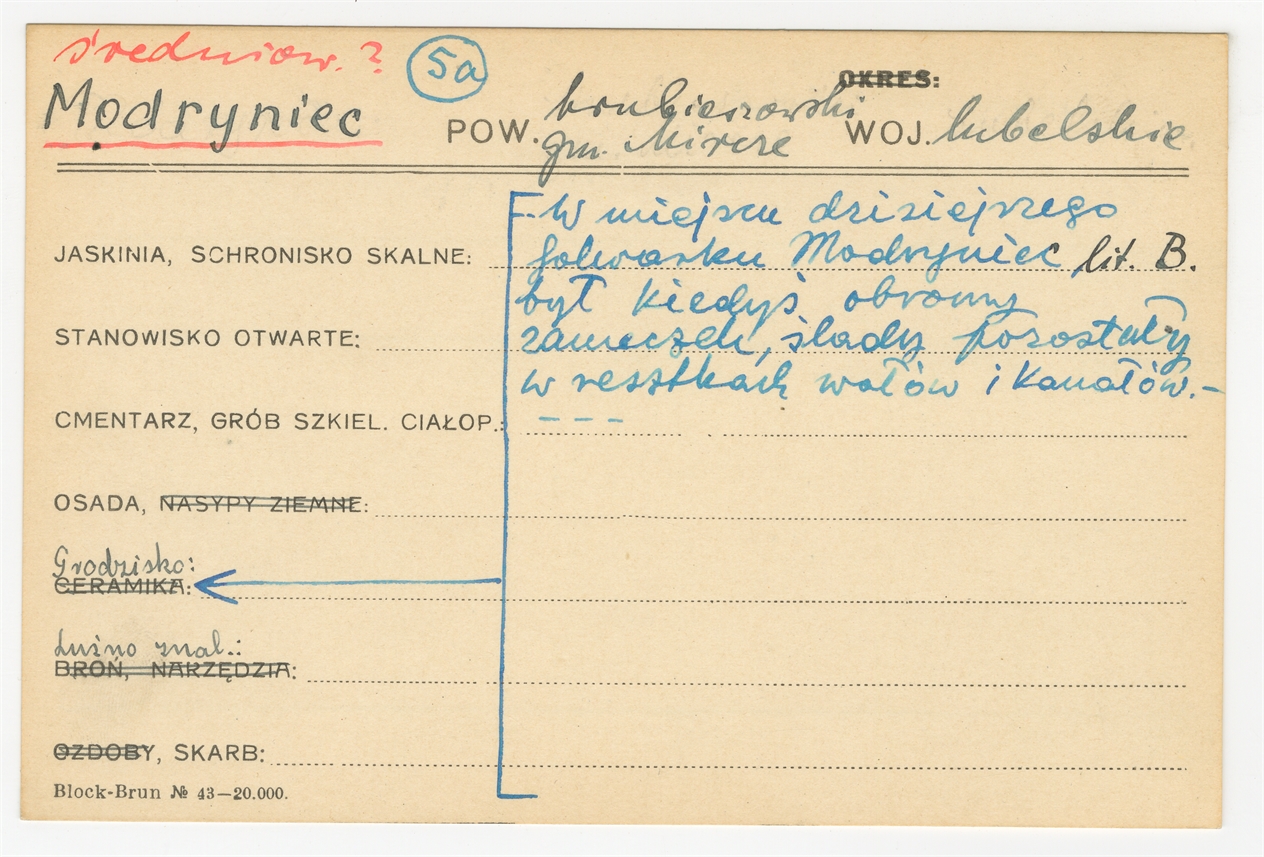 średniow. ?
5a
Modryniec
OKRES:
POW. hrubieszowski
gm. Mircze
WOJ. lubelskie
W miejscu dzisiejszego
JASKINIA, SCHRONISKO SKALNE: folwarku Modryniec lit. B.
był kiedyś obronny
STANOWISKO OTWARTE: zameczek, ślady pozostały
w resztkach wałów i kanałów.-
CMENTARZ, GRÓB SZKIEL. CIAŁOP.: - - -
OSADA, NASYPY ZIEMNE:
Grodzisko:
CERAMIKA:
Luźno znal.:
BROŃ, NARZĘDZIA:
OZDOBY, SKARB:
Block-Brun № 43—20.000.